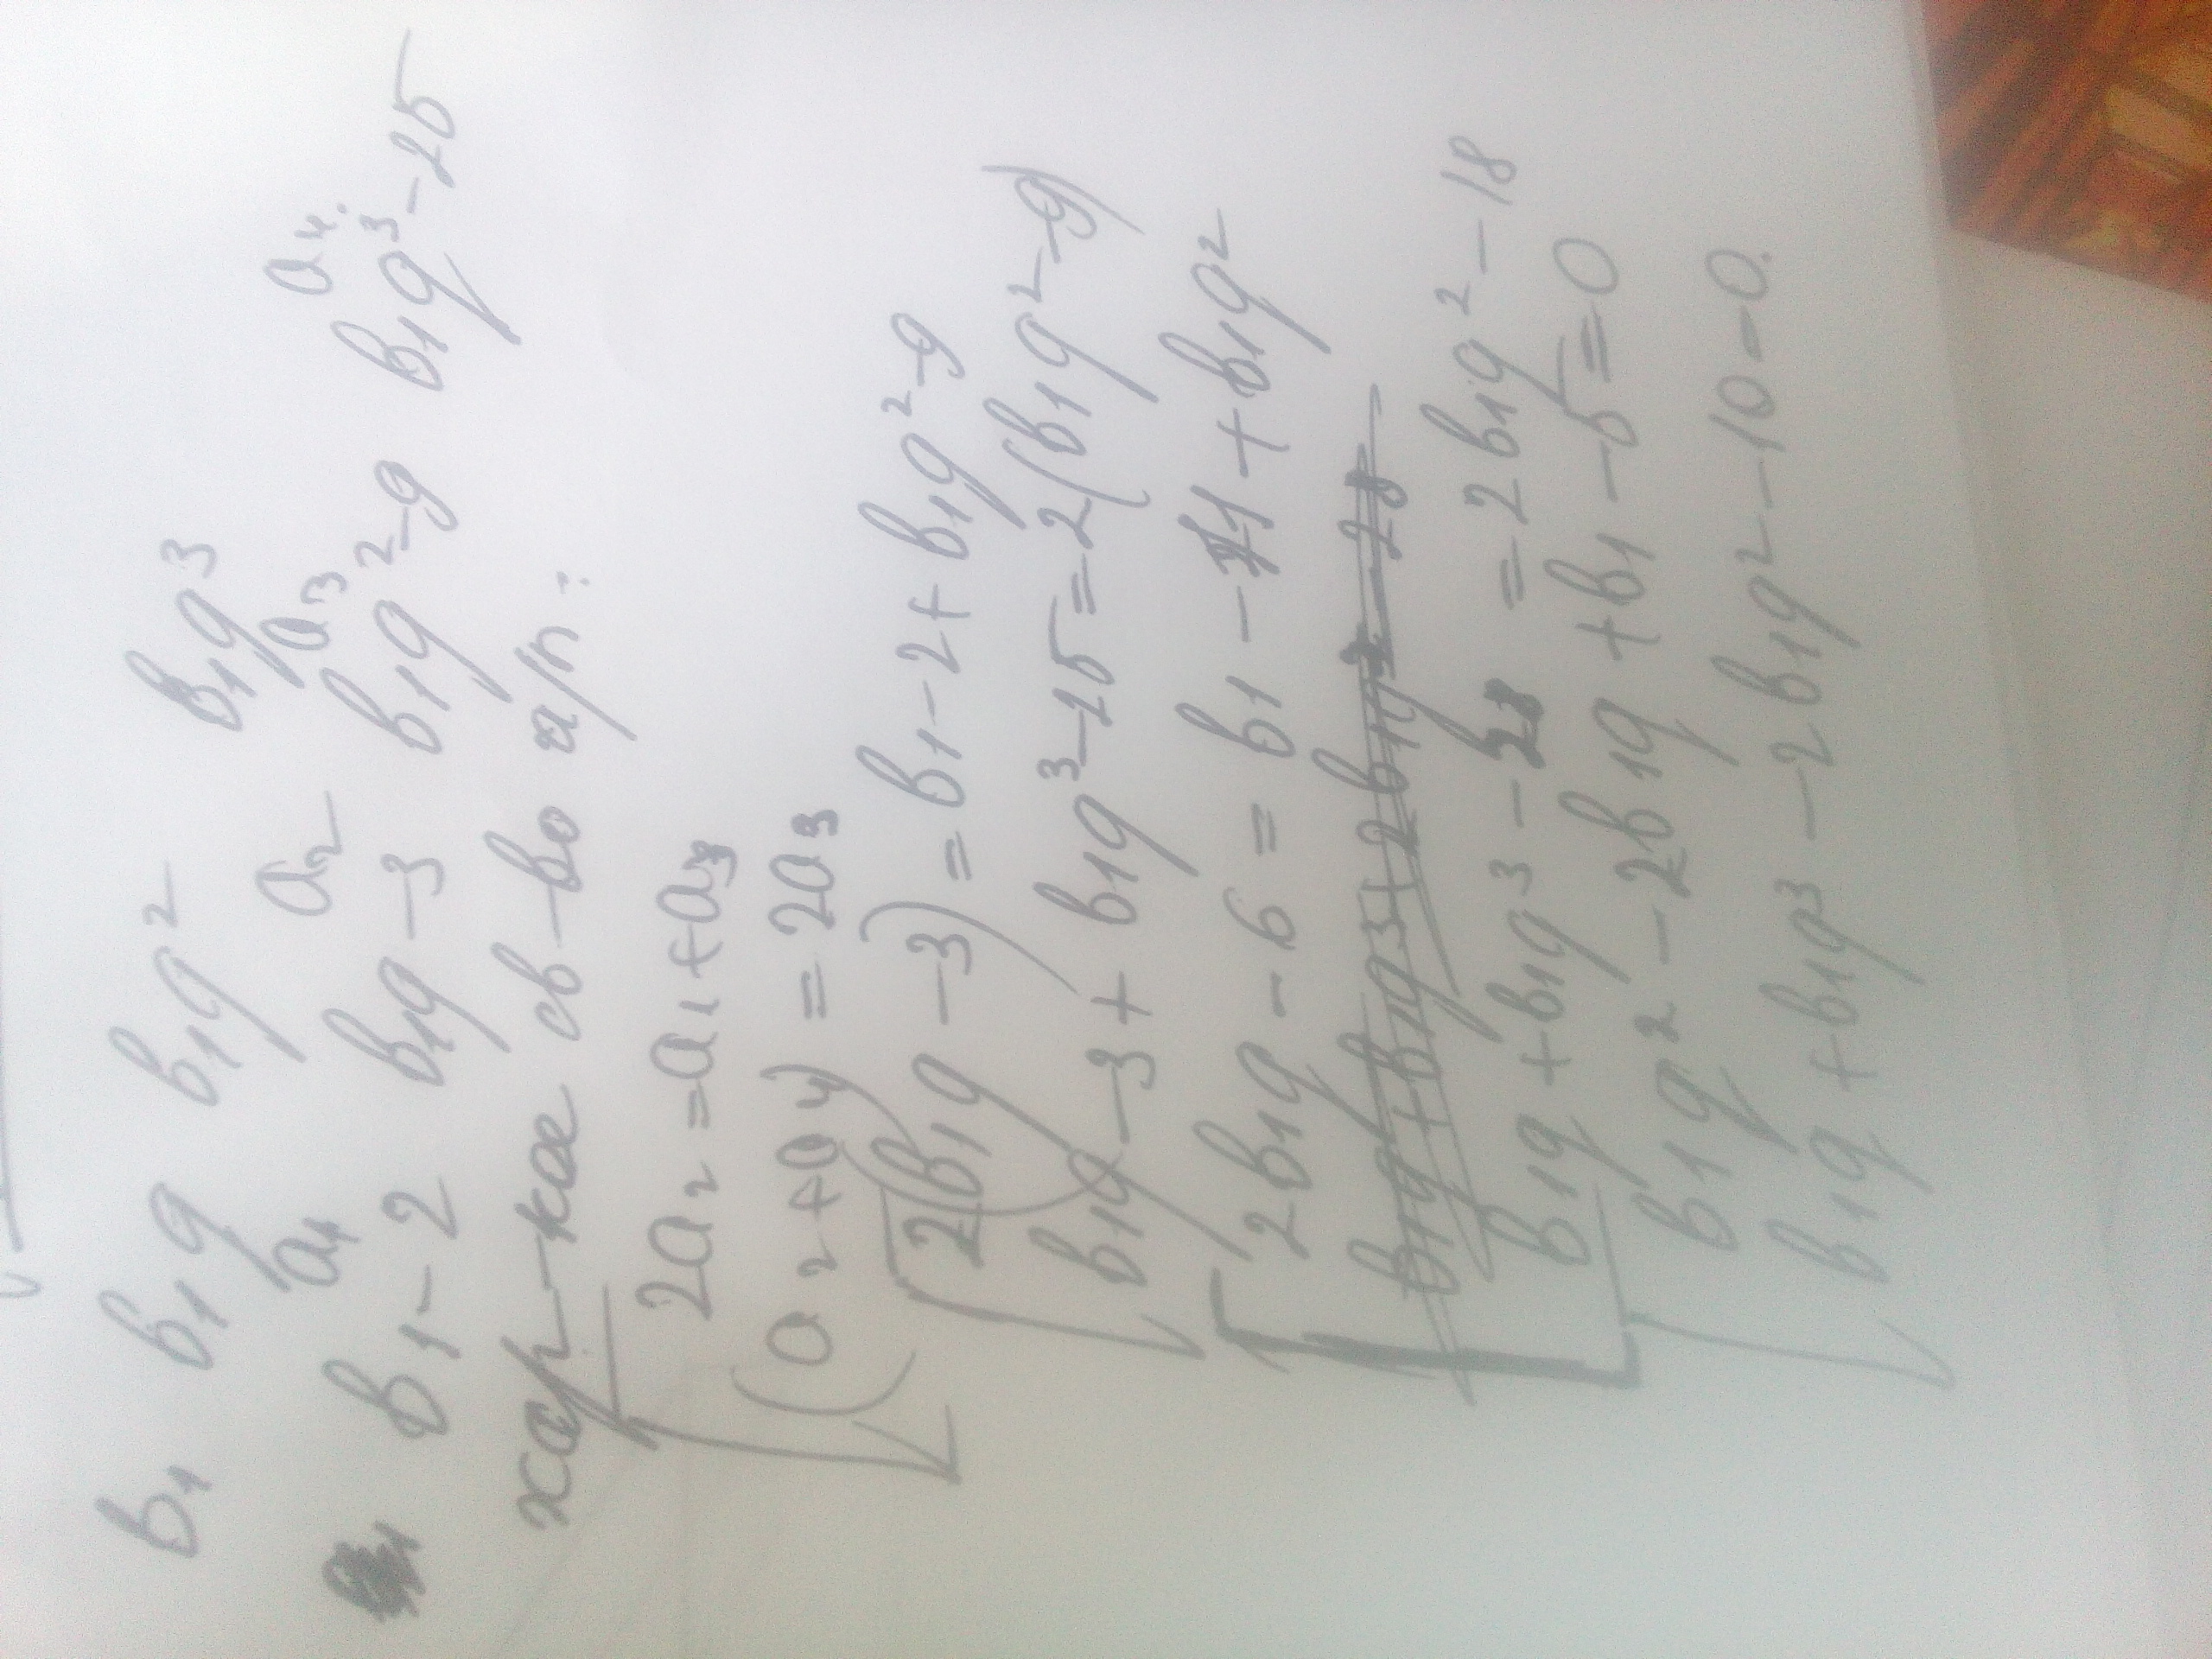 в₁ в₁q в₁q² в₁q³
a₁ a₂ a₃ a₄.
в₁-2 в₁q-3 в₁q²-9 в₁q³-25
хар-кое св-во а/п:
2a₂ = a₁+a₃
(a₂+a₄) = 2a₃
2(в₁q-3) = в₁-2+в₁q²-9
в₁q-3+в₁q³-25=2(в₁q²-9)
2в₁q-6 = в₁-11+в₁q²
в₁q+в₁q³-28 = 2в₁q²-18
в₁q²-2в₁q+в₁-5=0
в₁q+в₁q³-2в₁q²-10=0.